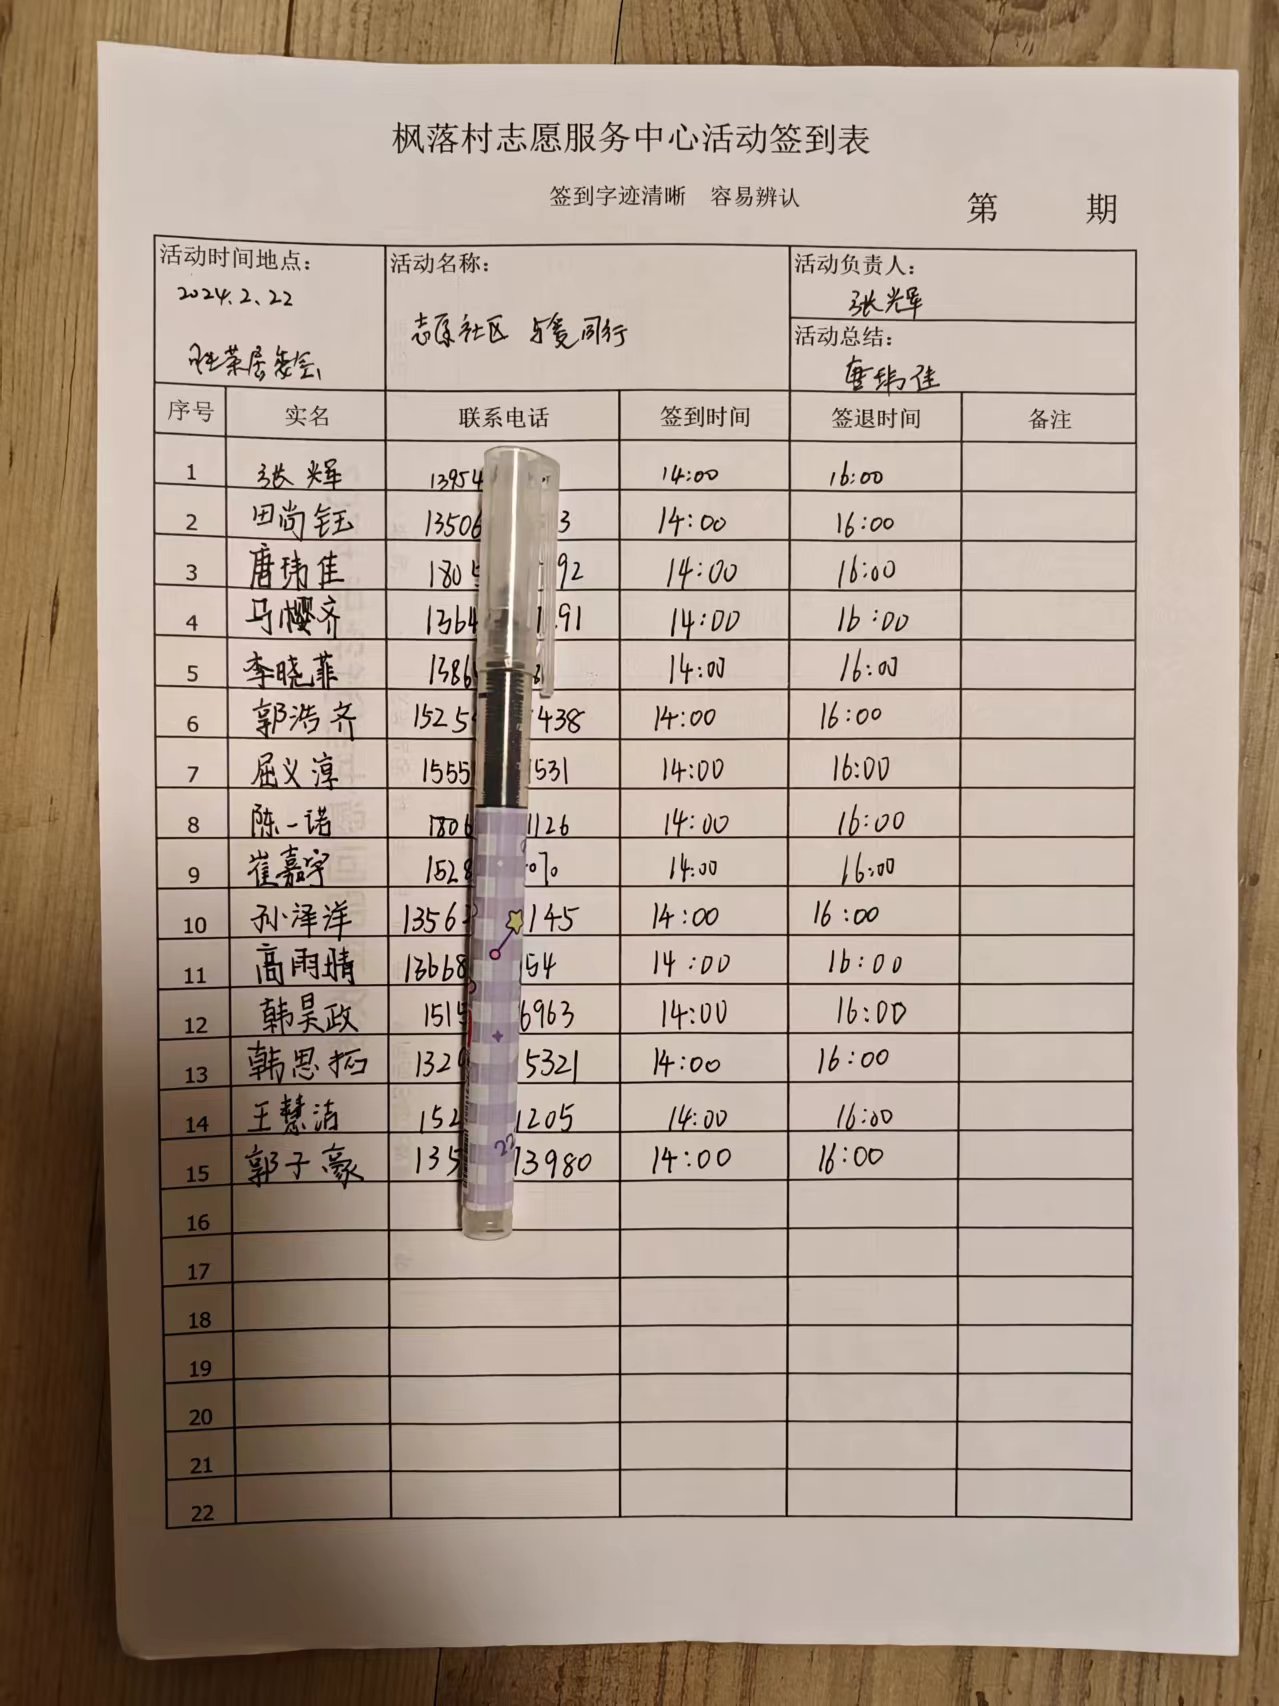 枫落村志愿服务中心活动签到表
签到字迹清晰 容易辨认
第 期
活动时间地点： 活动名称： 活动负责人：
2024.2.22 张辉
志愿社区 与爱同行
活动总结：
居委会 唐玮佳
序号 实名 联系电话 签到时间 签退时间 备注
1 张辉 13954 14:00 16:00
2 田尚钰 13506 3 14:00 16:00
3 唐玮佳 1805 92 14:00 16:00
4 马樱齐 1364 191 14:00 16:00
5 李晓菲 1386 14:00 16:00
6 郭浩齐 1525 438 14:00 16:00
7 屈义淳 1555 1531 14:00 16:00
8 陈一诺 1806 1126 14:00 16:00
9 崔嘉宇 1528 14:00 16:00
10 孙泽洋 1356 145 14:00 16:00
11 高雨晴 13668 54 14:00 16:00
12 韩昊政 1515 6963 14:00 16:00
13 韩思拓 132 5321 14:00 16:00
14 王慧洁 152 1205 14:00 16:00
15 郭子豪 135 13980 14:00 16:00
16
17
18
19
20
21
22